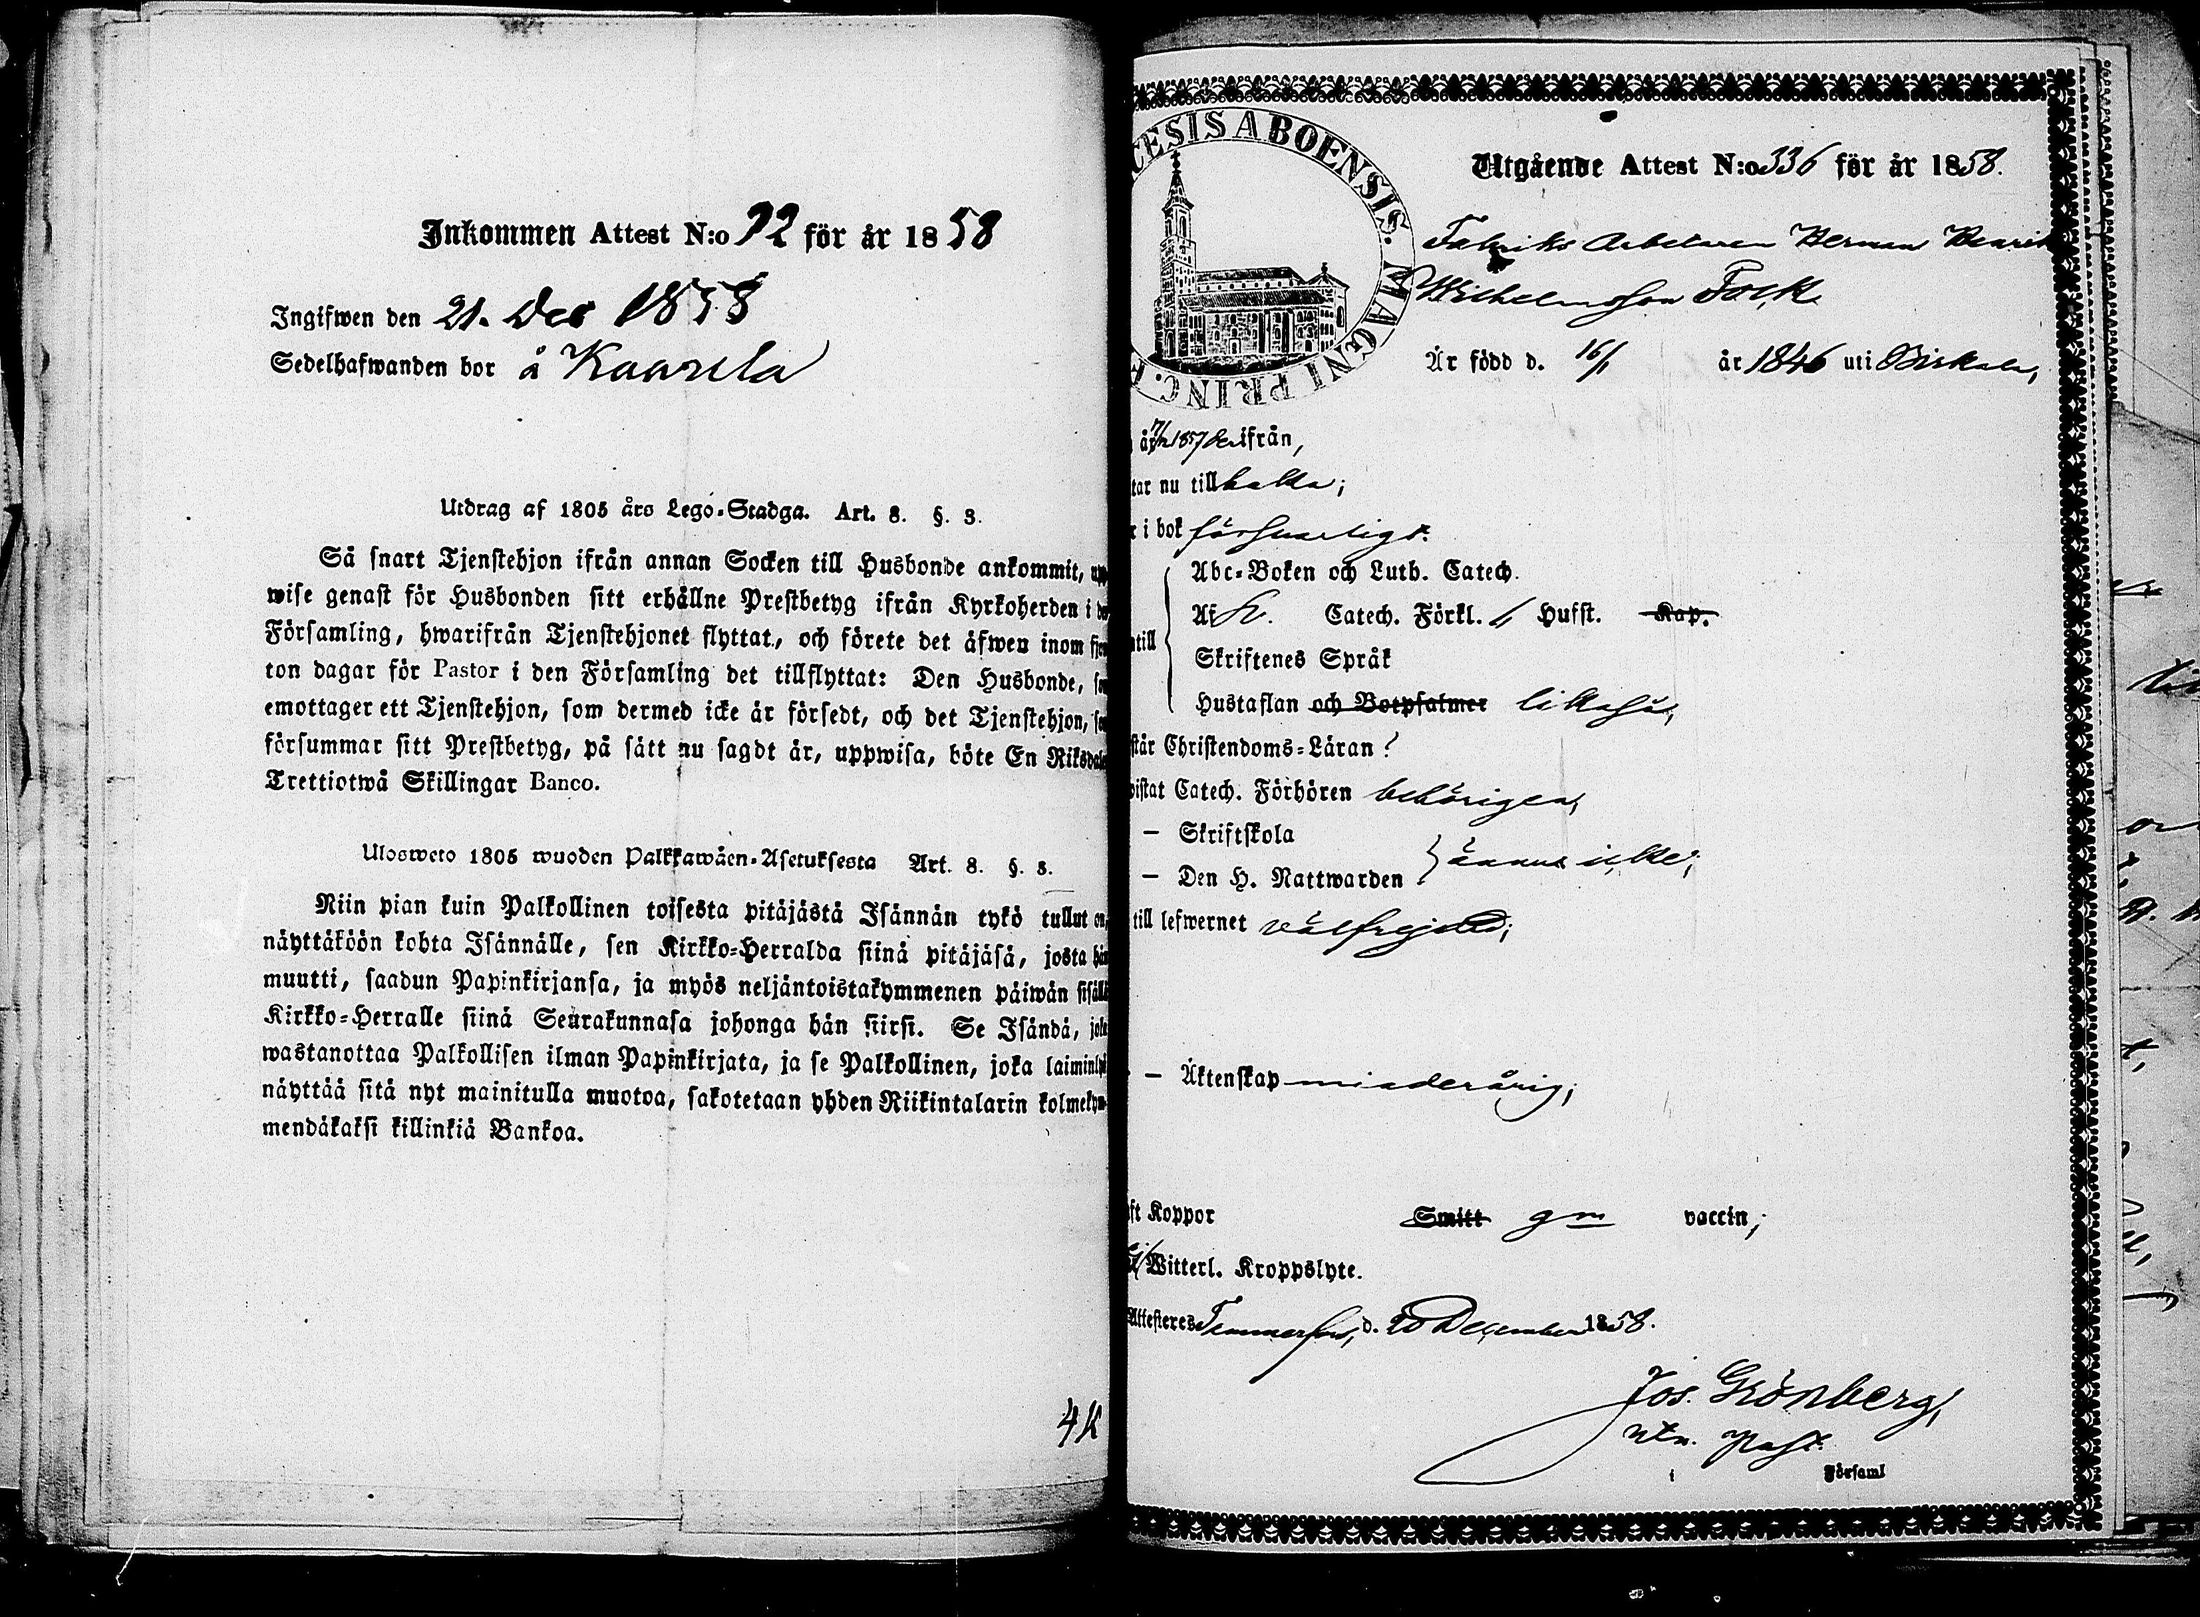 Inkommen Attest N:o 92 för år 1858
Ingifwen den 21. Dec 1858
Sedelhafwanden bor å Kaarela
Utdrag af 1805 års Lego-Stadga. Art. 8. §. 3.
Så snart Tjenstehjon ifrån annan Socken till Husbonde ankommit, upp
wise genast för Husbonden sitt erhållne Prestbetyg ifrån Kyrkoherden i den
Församling, hwarifrån Tjenstehjonet flyttat, och förete det äfwen inom fjor
ton dagar för Pastor i den Församling det tillflyttat: Den Husbonde, som
emottager ett Tjenstehjon, som dermed icke är försedt, och det Tjenstehjon, som
försummar sitt Prestbetyg, på sätt nu sagdt är, uppwisa, böte En Riksdaler
Trettiotwå Skillingar Banco.
Ulosweto 1805 wuoden Palkkawäen-Asetuksesta Art. 8. §. 3.
Niin pian kuin Palkollinen toisesta pitäjästä Isännän tykö tullut on,
näyttäköön kohta Isännälle, sen Kirkko-Herralda siinä pitäjäsä, josta hän
muutti, saadun Papinkirjansa, ja myös neljäntoistakymmenen päiwän sisällä
Kirkko-Herralle siinä Seurakunnasa johonga hän siirsi. Se Isändä, joka
wastanottaa Palkollisen ilman Papinkirjata, ja se Palkollinen, joka laiminlyö
näyttää sitä nyt mainitulla muotoa, sakotetaan yhden Riikintalarin kolmekym-
mendäkaksi killinkiä Bankoa.
4K
CESIS ABOENSIS. MAGNI PRINC. F
Utgående Attest N:o 336 för år 1858.
Fabriks Arbetaren Herman Henrik
Wilhelmsson Fock
Är född d. 16/1 år 1846 uti Birkala,
1857 derifrån,
tar nu till Kalka;
i bok försvarligt.
Abc-Boken och Luth. Catech.
Af Catech. Förkl. Hufst. Kap.
till
Skriftenes Språk
Hustaflan och Botpsalmer likaså,
står Christendoms-Läran?
wistat Catech. Förhören behörigen,
— Skriftskola
— Den H. Nattwarden ännu icke;
till lefwernet välfrejdad;
— Äktenskap minderårig;
ft Koppor Smitt gm vaccin;
Witterl. Kroppslyte.
Attesteres Tammerfors, d. 20 December 1858.
Jos. Grönberg,
Past.
i Församl